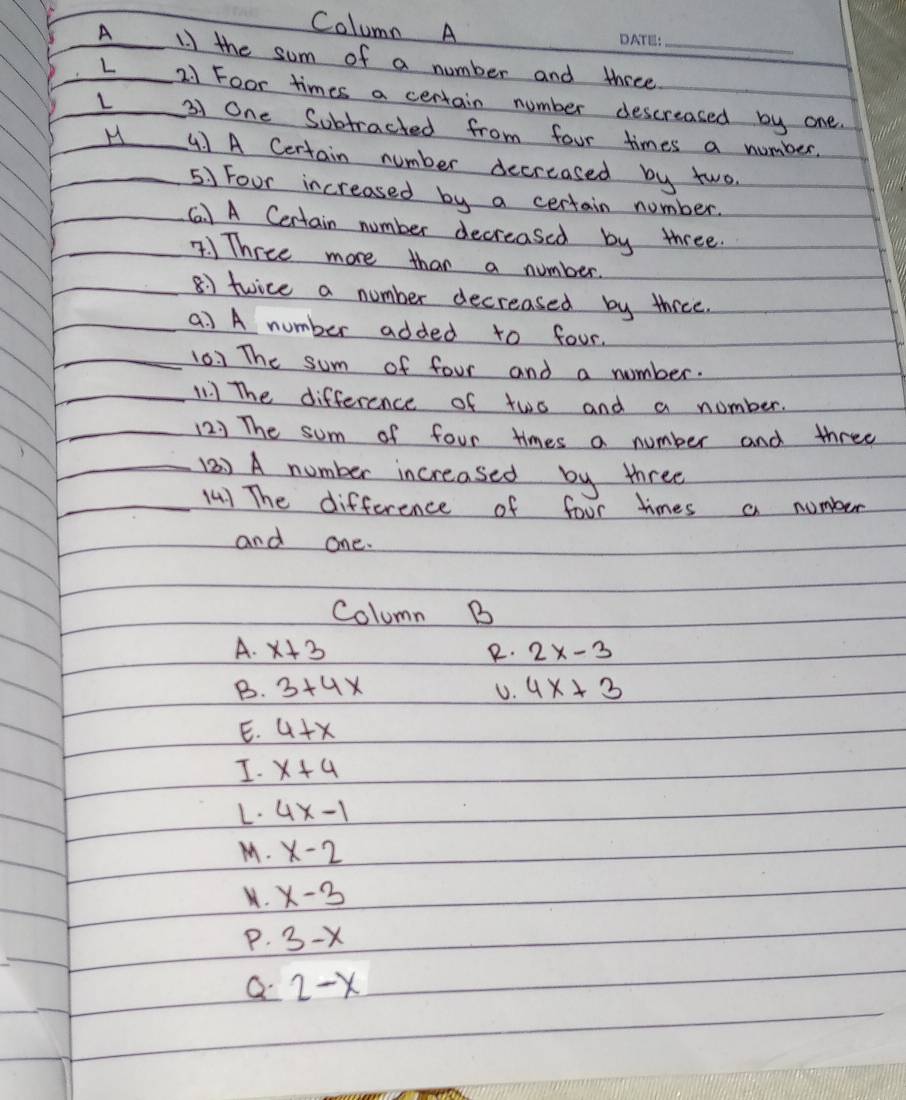 Column A
DATE:
A 1.) the sum of a number and three.
L 2.) Foor times a certain number descreased by one.
L 3) One Subtracted from four times a number.
M 4.) A Certain number decreased by two.
5.) Four increased by a certain number.
6.) A Certain number decreased by three.
7.) Three more than a number.
8.) twice a number decreased by three.
9.) A number added to four.
10.) The sum of four and a number.
11.) The difference of two and a number.
12.) The sum of four times a number and three
13.) A number increased by three
14.) The difference of four times a number
and one.
Column B
A. x+3 R. 2x-3
B. 3+4x U. 4x+3
E. 4+x
I. x+4
L. 4x-1
M. x-2
N. x-3
P. 3-x
Q. 2-x